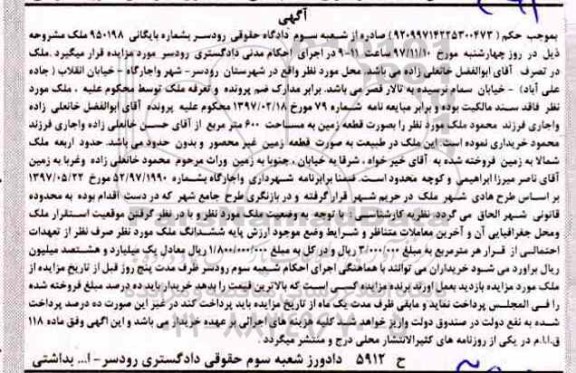 آگهی
بموجب حکم (۹۲۰۹۹۷۱۴۲۲۵۳۰۰۴۷۳) صادره از شعبه سوم دادگاه حقوقی رودسر بشماره بایگانی ۹۵۰۱۹۸ ملک مشروحه
ذیل در روز چهارشنبه مورخ ۹۷/۱۱/۱۰ ساعت ۱۱-۹ در اجرای احکام مدنی دادگستری رودسر مورد مزایده قرار میگیرد .ملک
در تصرف آقای ابوالفضل خانعلی زاده می باشد. محل مورد نظر واقع در شهرستان رودسر- شهر واجارگاه - خیابان انقلاب ( جاده
علی آباد) - خیابان سمام نرسیده به تالار قصر می باشد. برابر مدارک ضم پرونده و تعرفه ملک توسط محکوم علیه ، ملک مورد
نظر فاقد سند مالکیت بوده و برابر مبایعه نامه شماره ۷۹ مورخ ۱۳۹۷/۰۲/۱۸ محکوم علیه پرونده آقای ابوالفضل خانعلی زاده
واجاری فرزند محمود ملک مورد نظر را بصورت قطعه زمین به مساحت ۶۰۰ متر مربع از آقای حسن خانعلی زاده واجاری فرزند
محمود خریداری نموده است. این ملک در طبیعت به صورت قطعه زمین غیر محصور و بدون حدود می باشد. حدود اربعه ملک
شمالا به زمین فروخته شده به آقای خیر خواه ، شرقا به خیابان ، جنوبا به زمین وراث مرحوم محمود خانعلی زاده وغربا به زمین
آقای ناصر میرزا ابراهیمی و کوچه محدود است. ضمنا برابرنامه شهرداری واجارگاه بشماره ۵۲/۹۷/۱۹۹۰ مورخ ۱۳۹۷/۰۵/۲۲
بر اساس طرح هادی شهر ملک در حریم شهر قرار گرفته و در بازنگری طرح جامع شهر که در دست اقدام بوده به محدوده
قانونی شهر الحاق می گردد. نظریه کارشناسی: با توجه به وضعیت ملک مورد نظر و با در نظر گرفتن موقعیت استقرار ملک
ومحل جغرافیایی آن و آخرین معاملات متناظر و شرایط وضع موجود ارزش پایه ششدانگ ملک مورد نظر صرف نظر از تعهدات
احتمالی از قرار هر مترمربع به مبلغ ۳/۰۰۰/۰۰۰ ریال و در کل به مبلغ ۱/۸۰۰/۰۰۰/۰۰۰ ریال معادل یک میلیارد و هشتصد میلیون
ریال براورد می شود خریداران می توانند با هماهنگی اجرای احکام شعبه سوم رودسر ظرف مدت پنج روز قبل از تاریخ مزایده از
ملک مورد مزایده بازدید بعمل اورند برنده مزایده کسی است که بالاترین قیمت را بدهد خریدار باید ده درصد مبلغ فروخته شده
را فی المجلس پرداخت نماید و مابقی ظرف مدت یک ماه از تاریخ مزایده باید پرداخت کند در غیر این صورت ده درصد پرداخت
شده به نفع دولت در صندوق دولت واریز خواهد شد. کلیه هزینه های اجرائی بر عهده خریدار می باشد و این آگهی وفق ماده ۱۱۸
ق.ا.ا.م در یکی از روزنامه های کثیرالانتشار محلی درج و منتشر میگردد.
ح ۵۹۱۲ دادورز شعبه سوم حقوقی دادگستری رودسر-ا... بداشتی